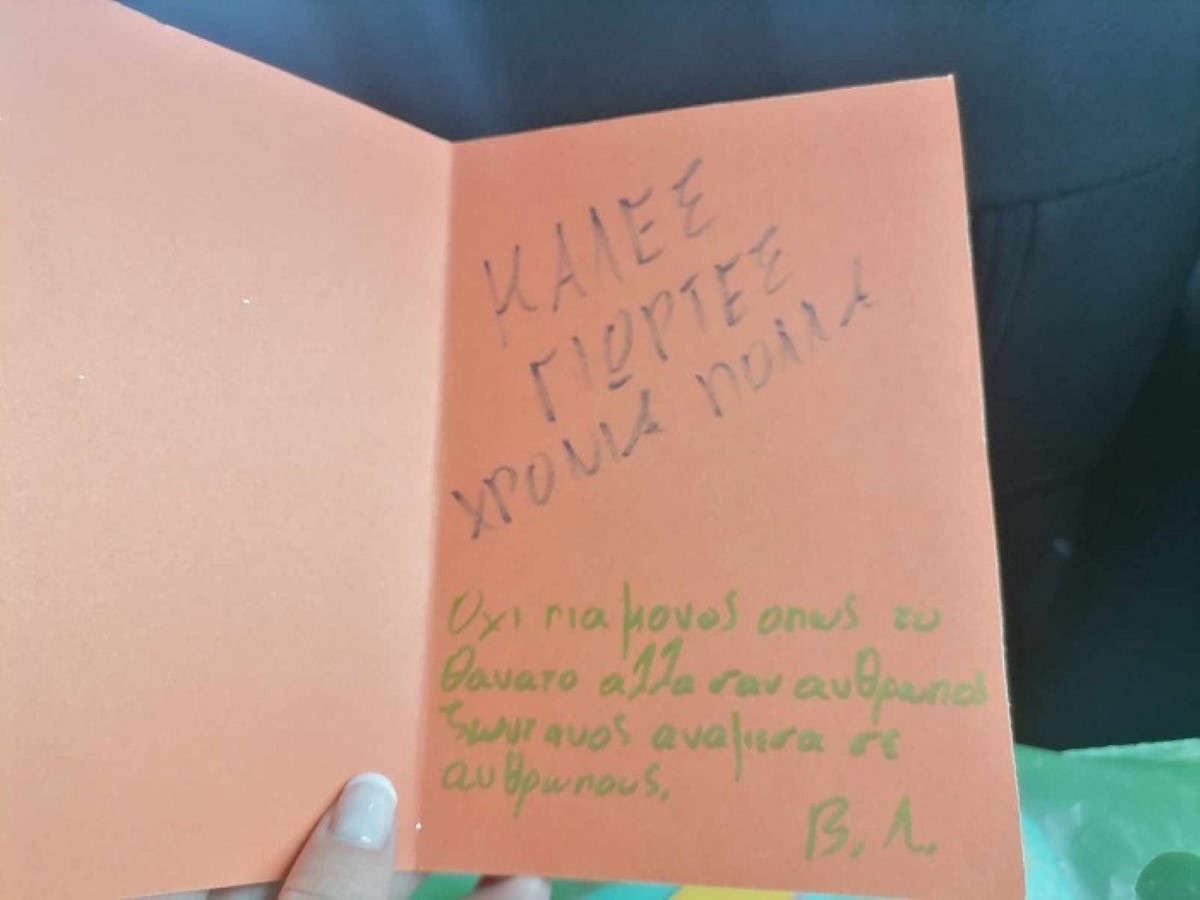 ΚΑΛΕΣ
ΓΙΩΡΤΕΣ
ΧΡΟΝΙΑ ΠΟΛΛΑ
Οχι πια μονος οπως το
θανατο αλλα σαν ανθρωπος
ζωντανος αναμεσα σε
ανθρωπους.
Β. Λ.